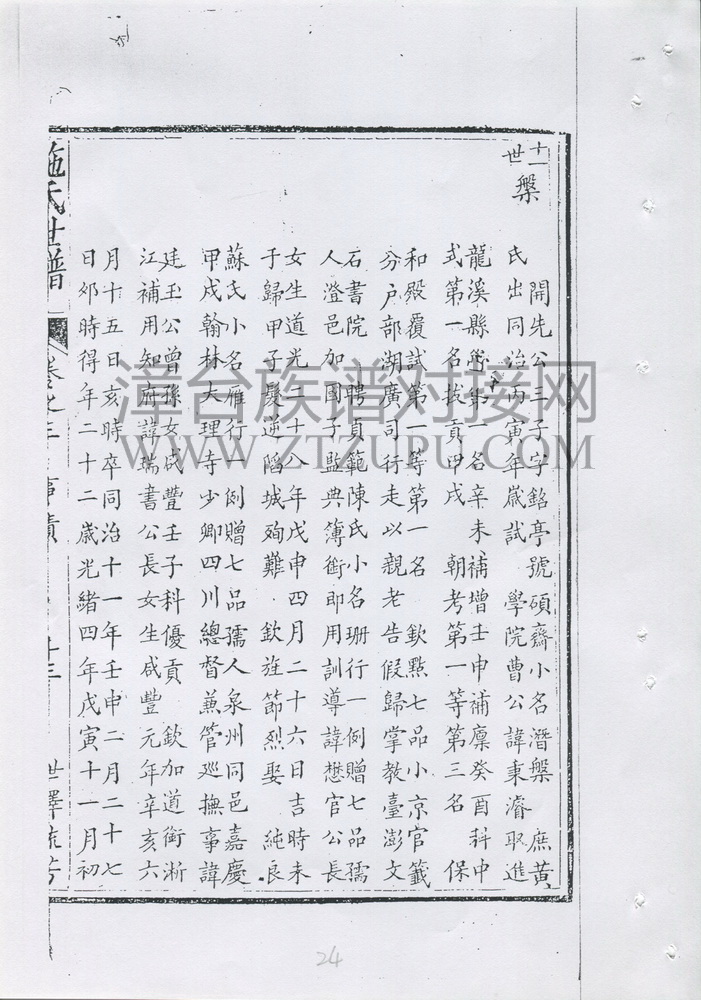 十一世 槃
開先公三子字銘亭號碩齋小名潛槃 庶黃
氏出同治丙寅年歲試 學院曹公諱秉濬取進
龍溪縣學第一名辛未補增壬申補廩癸酉科中
式第一名拔貢甲戌 朝考第一等第三名 保
和殿覆試第一等第一名 欽點七品小京官籤
分戶部湖廣司行走以親老告假歸掌教臺澎文
石書院 聘貢範陳氏小名珊行一例贈七品孺
人澄邑加國子監典簿銜即用訓導諱懋官公長
女生道光二十八年戊申四月二十六日吉時未
于歸甲子髮逆陷城殉難 欽旌節烈娶 純良
蘇氏小名雁行 例贈七品孺人泉州同邑嘉慶
甲戌翰林大理寺少卿四川總督兼管巡撫事諱
廷玉公曾孫女咸豐壬子科優貢 欽加道銜淅
江補用知府諱瑞書公長女生咸豐元年辛亥六
月十五日亥時卒同治十一年壬申二月二十七
日卯時得年二十二歲光緒四年戊寅十一月初
施氏世譜 卷之三 事蹟 十三 世澤流芳
漳台族谱对接网
WWW.ZTZUPU.COM
24